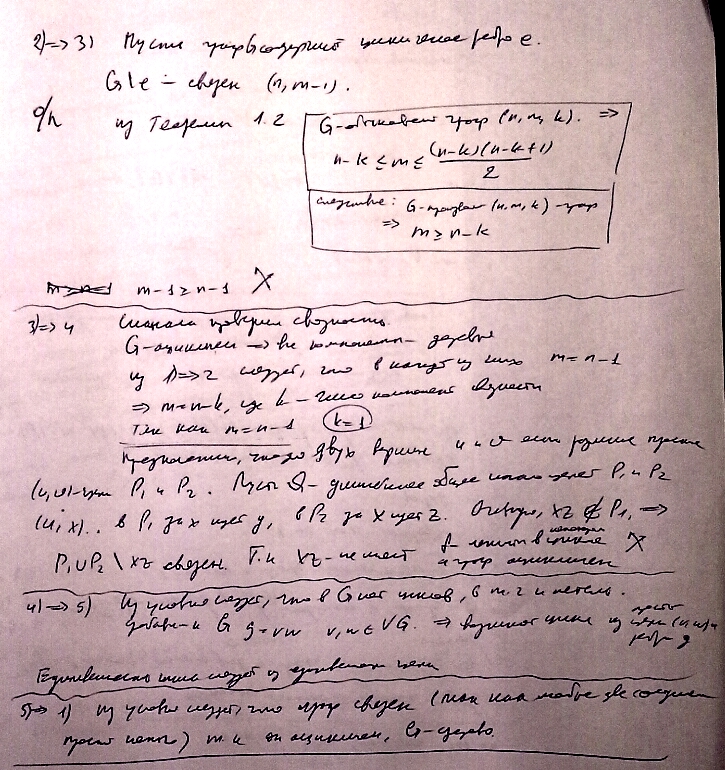 2) => 3) Пусть граф G содержит цикличное ребро e.
G\e – связен (n, m-1).
из Теоремы 1.2
G-обыкновен граф (n, m, k). =>
n-k ≤ m ≤ (n-k)(n-k+1)
2
следствие: G- (n, m, k) -граф
=> m ≥ n-k
m-1 ≥ n-1 X
3) => 4 Сначала проверим связность.
G-ацикличен => все компоненты – деревья
из 1) => 2 следует, что в каждой из них m = n-1
=> m = n-k, где k – число компонент связности
Так как m = n-1 k=1
Предположим, что для двух вершин u и v есть разные простые
(u,v)-цепи P₁ и P₂. Пусть Q – длиннейшее общее начало цепей P₁ и P₂
(u, x). в P₁ за x идет y, в P₂ за x идет z. Очевидно, xz ∉ P₁, =>
P₁∪P₂ \ xz связен. Т.к. xz – не мост и граф ацикличен X
4) => 5) Из условия следует, что в G нет циклов, в т.ч. и петель.
Добавим к G g = vw v, w ∈ VG. => возникнет цикл из цепи и
ребра g
Единственность цикла следует из единственности цепи
5) => 1) Из условия следует, что граф связен (так как любые две соединены
простой цепью) т.к. он ацикличен, G-дерево.